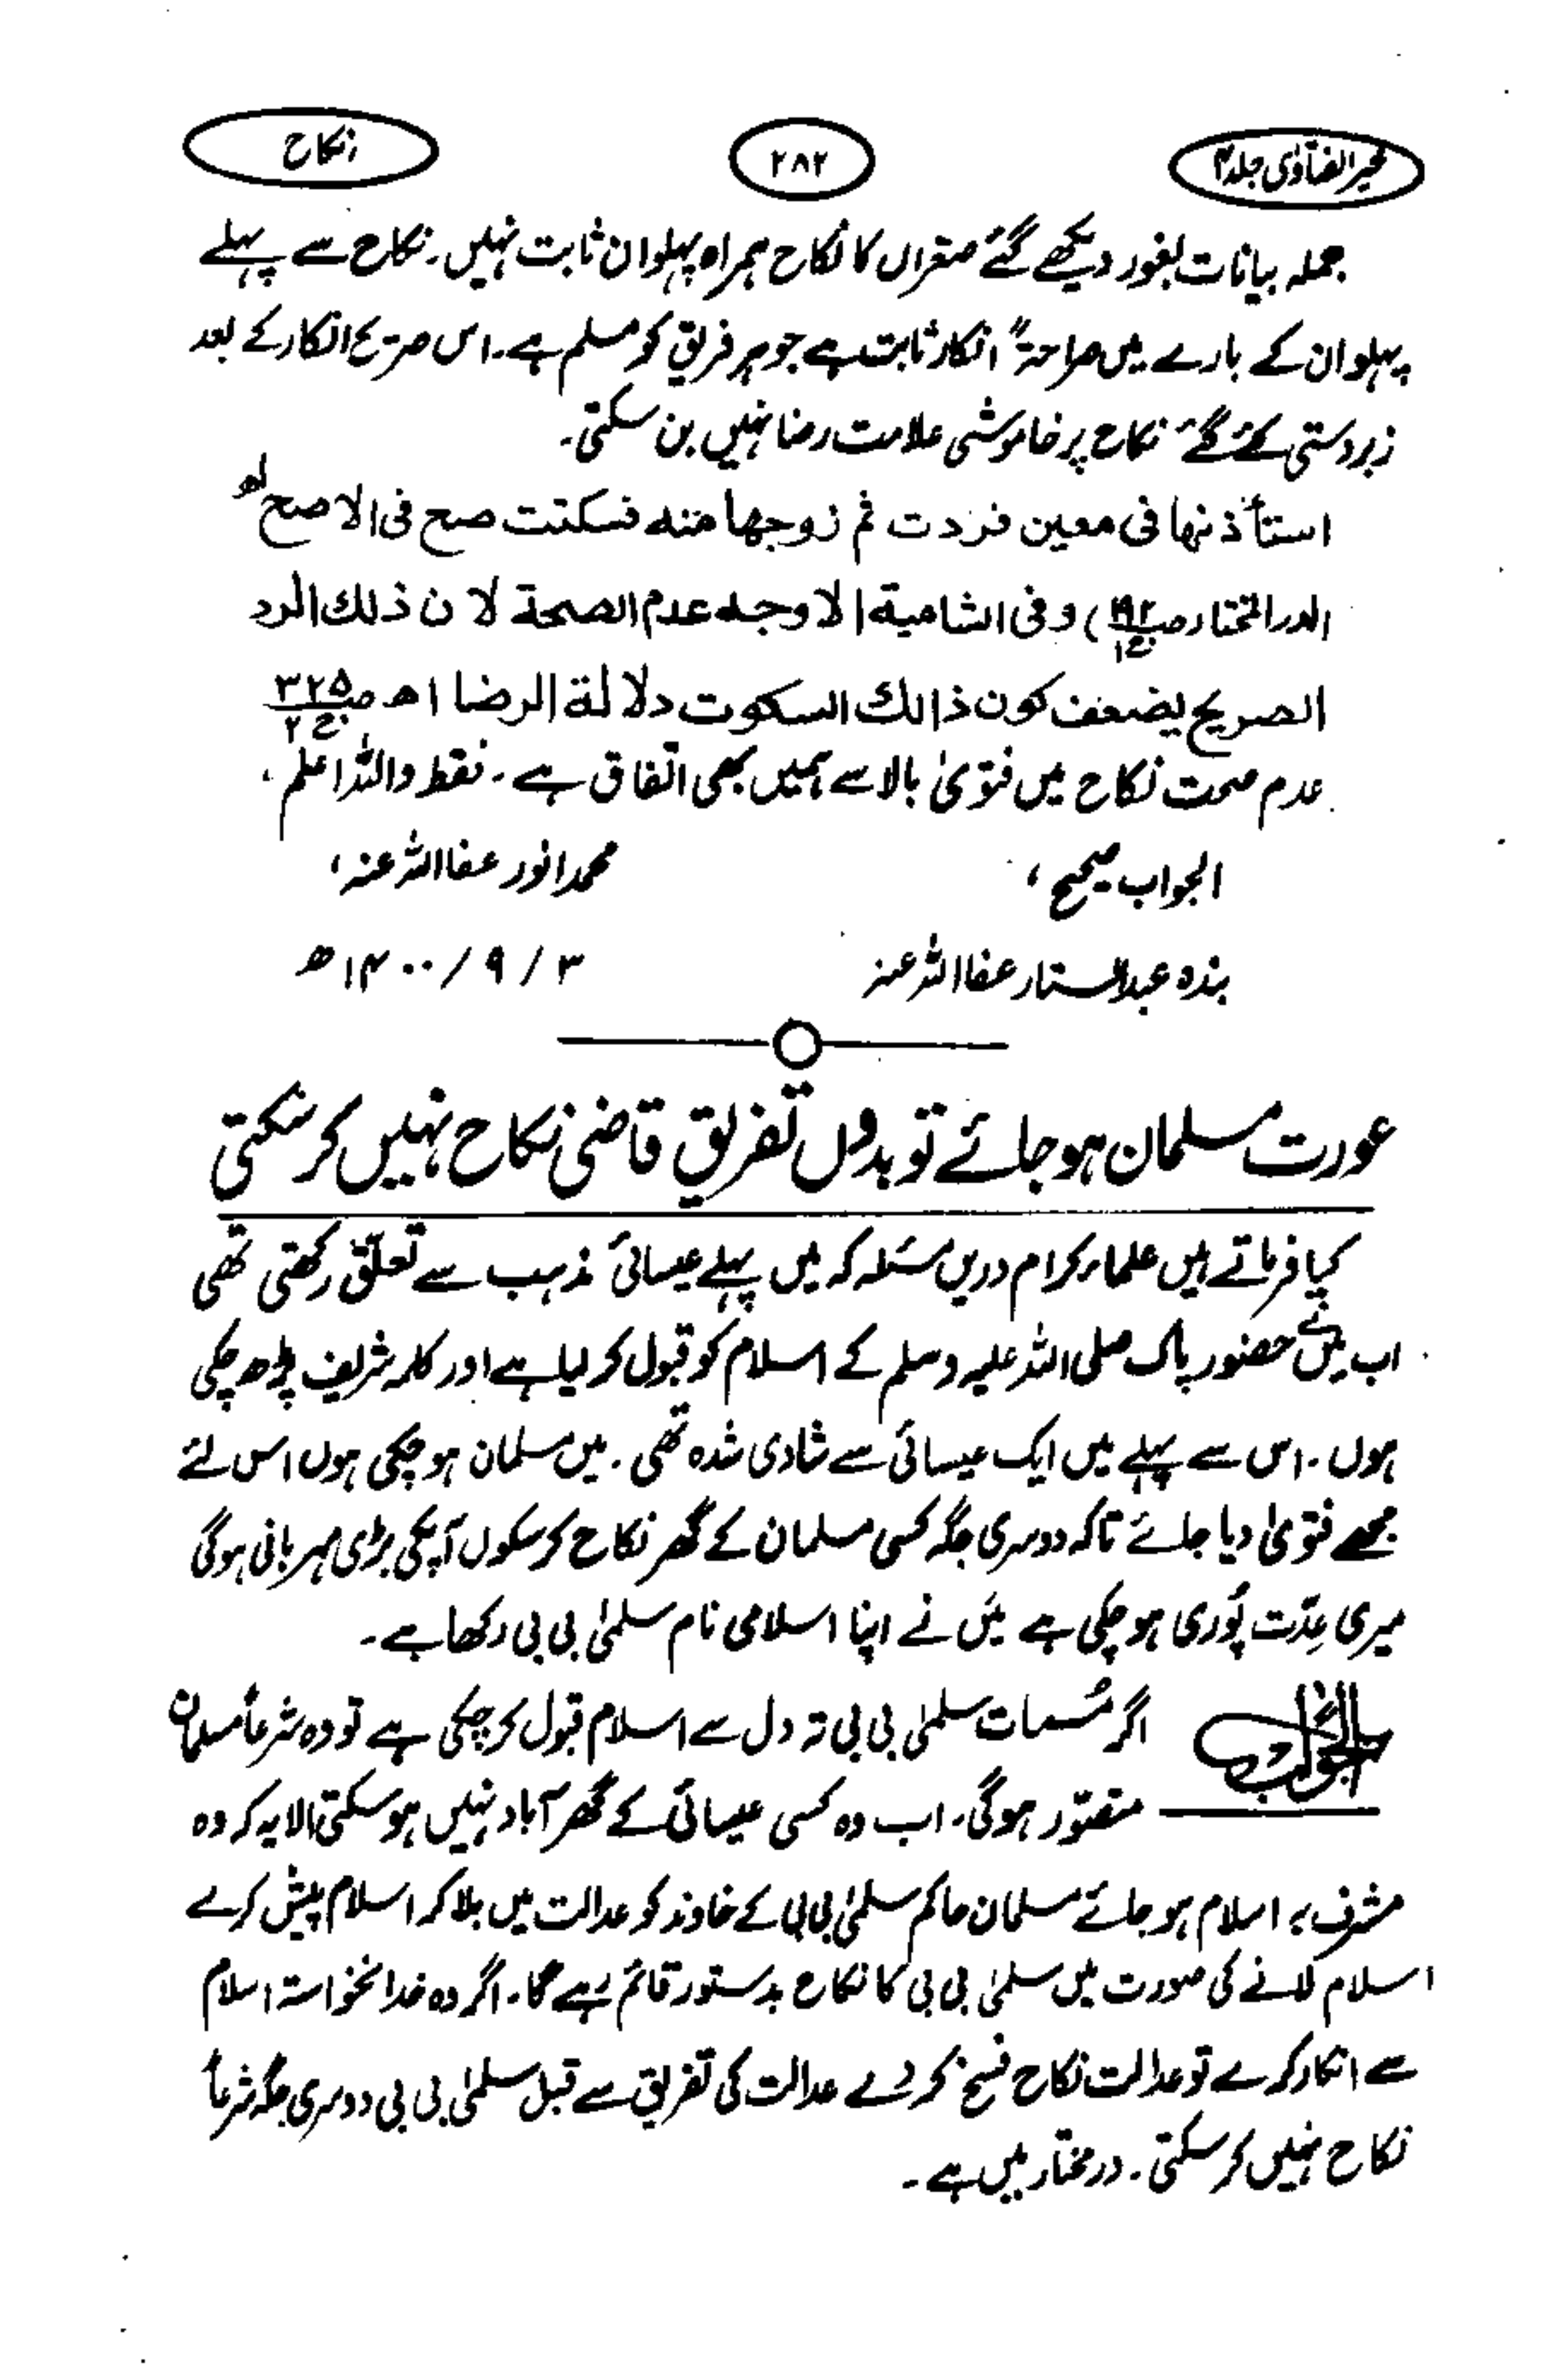 خیر الفتاوٰی جلد ۴
۲۸۲
نکاح
جملہ بیانات بغور دیکھے گئے مہتراں کا نکاح ہمراہ پہلوان ثابت نہیں۔ نکاح سے پہلے
پہلوان کے بارے میں صراحۃً انکار ثابت ہے جو ہر فریق کو مسلم ہے۔ اس صریح انکار کے بعد
زبردستی کئے گئے نکاح پر خاموشی علامت رضا نہیں بن سکتی۔
استأذنھا فی معین فردت ثم زوجھا منہ فسکتت صح فی الاصح اھ
الدر المختار ص۱۹۲ ج۱) وفی الشامیۃ الاوجہ عدم الصحۃ لان ذلك الرد
الصریح یضعف کون ذالك السکوت دلالۃ الرضا اھ ص۳۲۵ ج۲
عدم صحت نکاح میں فتویٰ بالا سے ہمیں بھی اتفاق ہے۔ فقط واللہ اعلم،
الجواب صحیح، محمد انور عفا اللہ عنہ،
بندہ عبدالستار عفا اللہ عنہ ۳ / ۹ / ۱۴۰۰ھ
عورت مسلمان ہو جائے تو بدوں تفریق قاضی نکاح نہیں کر سکتی
کیا فرماتے ہیں علماء کرام دریں مسئلہ کہ میں پہلے عیسائی مذہب سے تعلّق رکھتی تھی
اب میں نے حضور پاک صلی اللہ علیہ وسلم کے اسلام کو قبول کر لیا ہے اور کلمہ شریف پڑھ چکی
ہوں۔ اس سے پہلے میں ایک عیسائی سے شادی شدہ تھی۔ میں مسلمان ہو چکی ہوں اس لئے
مجھے فتویٰ دیا جائے تاکہ دوسری جگہ کسی مسلمان کے گھر نکاح کر سکوں آپکی بڑی مہربانی ہوگی
میری عِدّت پُوری ہو چکی ہے میں نے اپنا اسلامی نام سلمیٰ بی بی رکھا ہے۔
الجواب اگر مُسمات سلمیٰ بی بی تہ دل سے اسلام قبول کر چکی ہے تو وہ شرعاً مسلمان
متصوّر ہوگی۔ اب وہ کسی عیسائی کے گھر آباد نہیں ہو سکتی الا یہ کہ وہ
مشرف بہ اسلام ہو جائے مسلمان حاکم سلمیٰ بی بی کے خاوند کو عدالت میں بلا کر اسلام پیش کرے
اسلام لانے کی صورت میں سلمیٰ بی بی کا نکاح بدستور قائم رہے گا۔ اگر وہ خدانخواستہ اسلام
سے انکار کرے تو عدالت نکاح فسخ کر دے عدالت کی تفریق سے قبل سلمیٰ بی بی دوسری جگہ شرعاً
نکاح نہیں کر سکتی۔ درمختار میں ہے۔